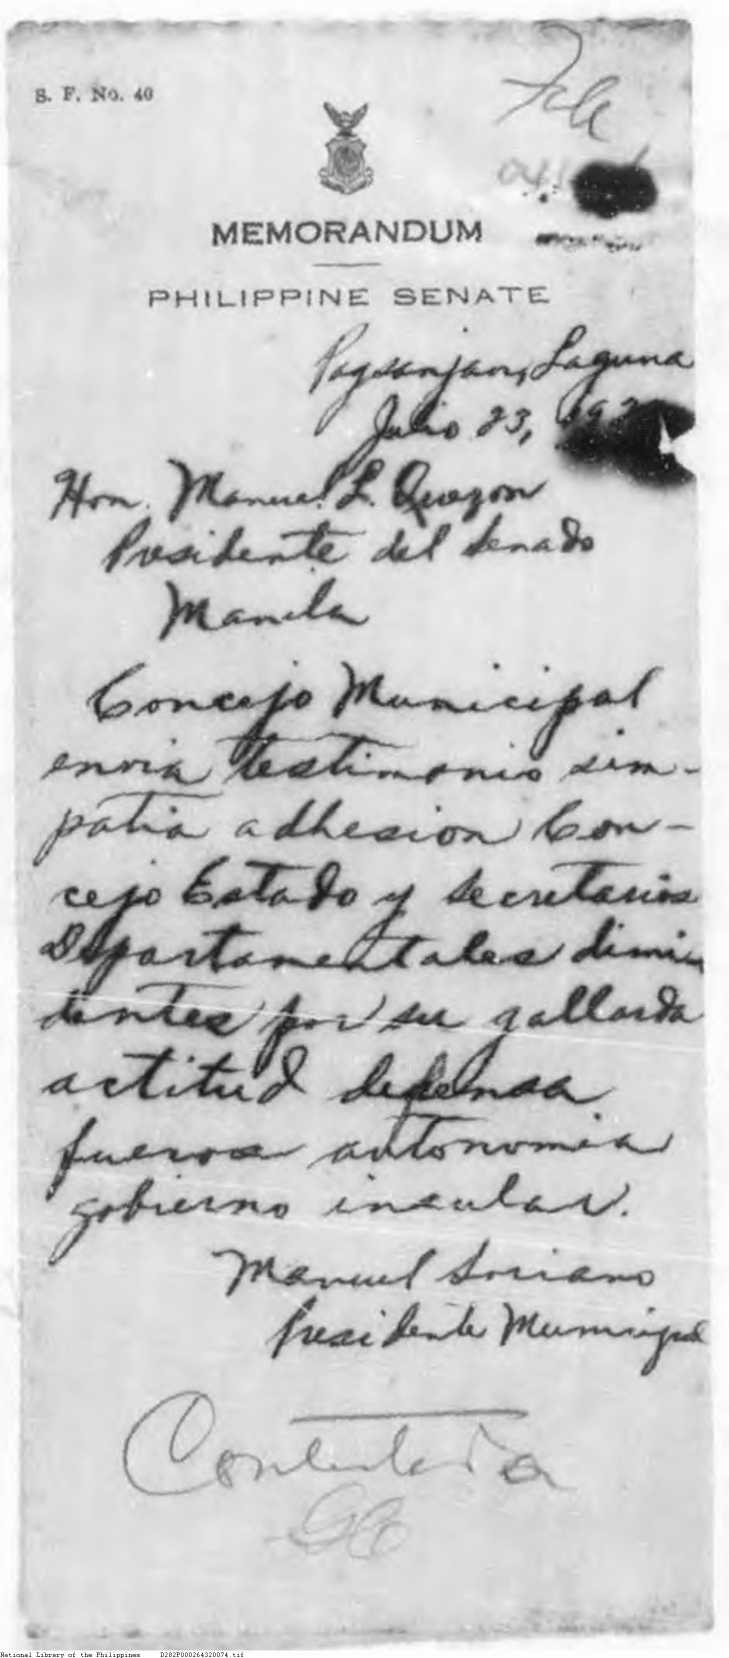 S. F. No. 40
File
MEMORANDUM
PHILIPPINE SENATE
Pagsanjan, Laguna
Julio 23, 192
Hon. Manuel L. Quezon
Presidente del Senado
Manila
Concejo Municipal
envia testimonio sim-
patia adhesion Con-
cejo Estado y secretarios
Departamentales dimi
dentes por su gallarda
actitud defensa
fueros autonomia
gobierno insular.
Manuel Soriano
Presidente Municipal
Contestada
National Library of the Philippines D282P000264320074.tif